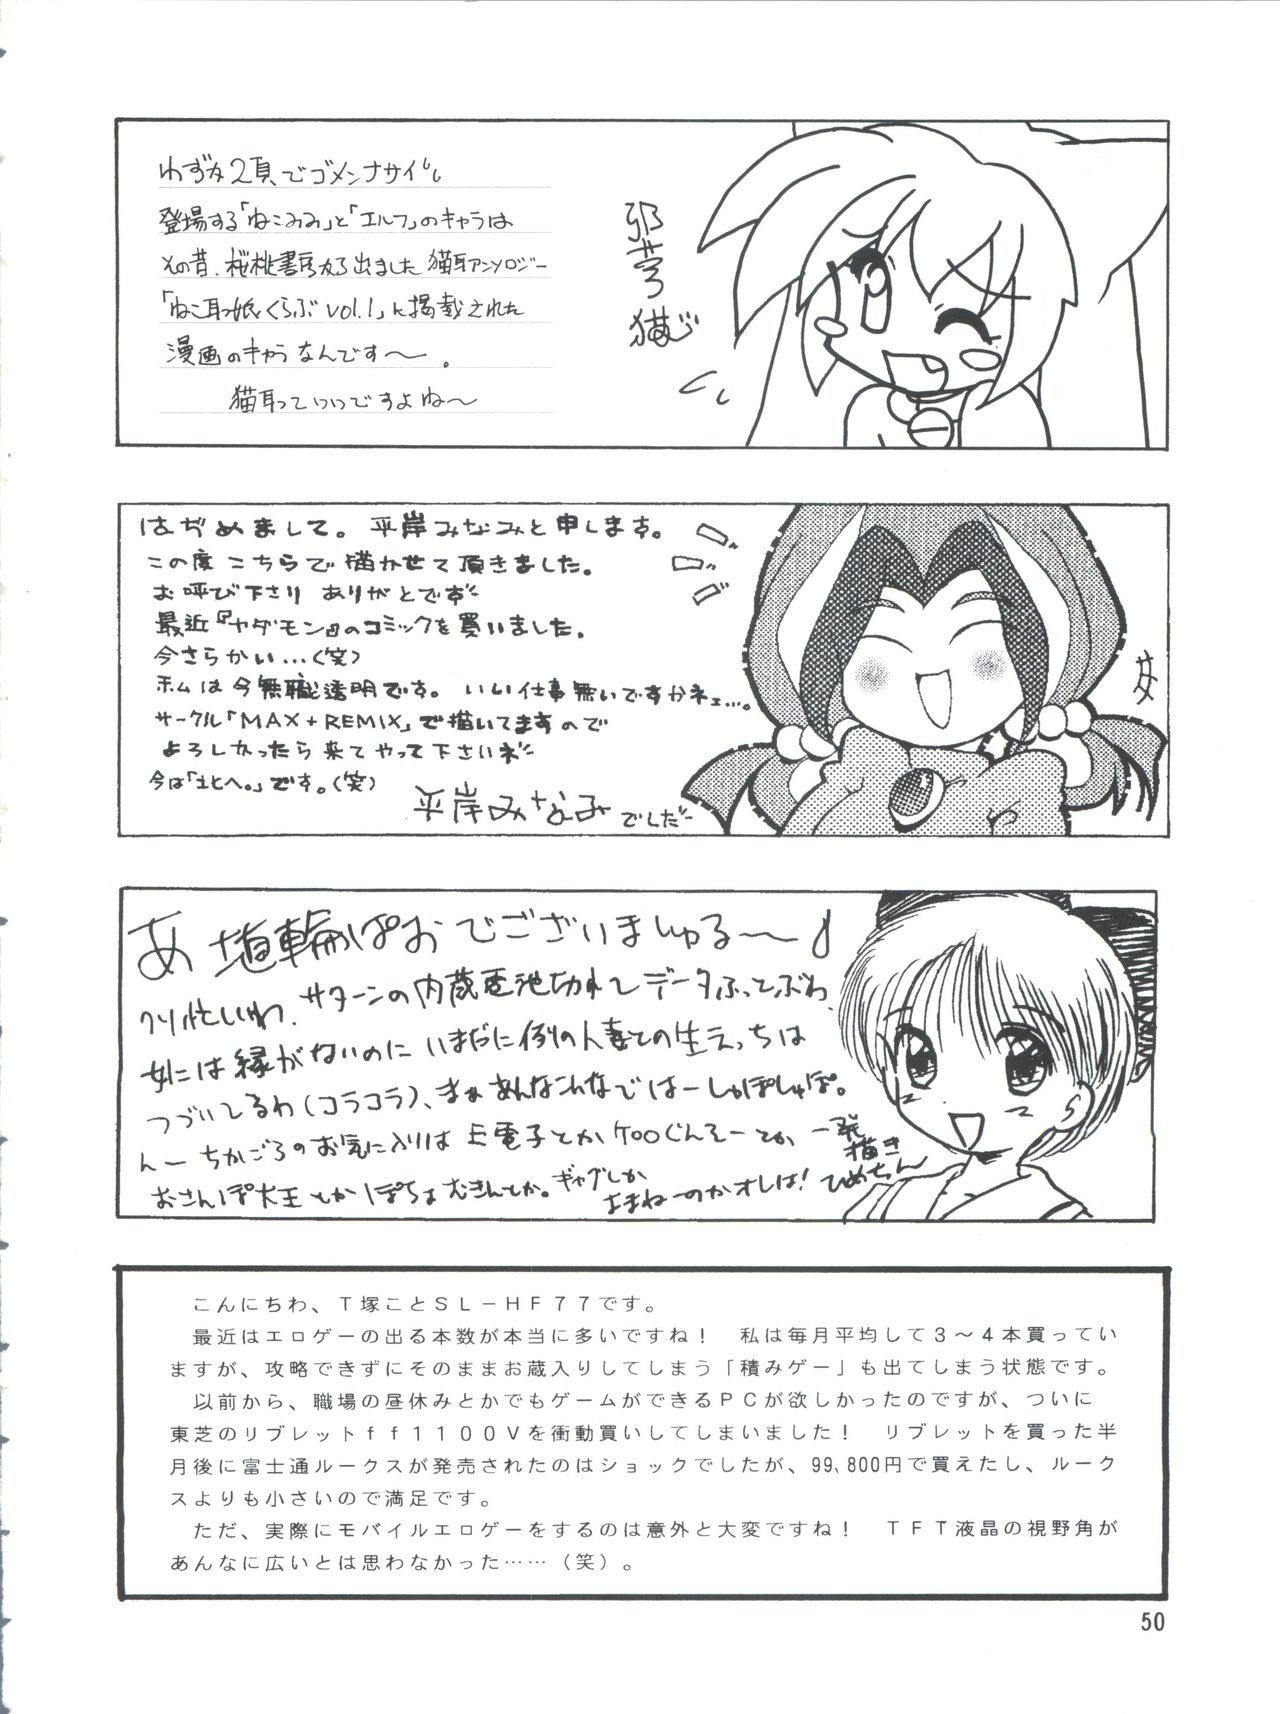 わずか2頁でゴメンナサイ
登場する「ねこみみ」と「エルフ」のキャラは
その昔、桜桃書房から出ました猫耳アンソロジー
「ねこ耳っ娘くらぶVol.1」に掲載された
漫画のキャラなんです〜。
猫耳っていいですよね〜
はぢめまして。平岸みなみと申します。
この度こちらで描かせて頂きました。
お呼び下さりありがとです
最近『ヤダモン』のコミックを買いました。
今さらかい…(笑)
ホムは今無職透明です。いい仕事無いですかネェ…。
サークル「MAX+REMIX」で描いてますので
よろしかったら来てやって下さいネ
今は「北へ。」です。(笑)
平岸みなみでした
あ 埴輪ぱおでございましゅる〜♪
忙しいわ、サターンの内蔵電池切れてデータふっとぶわ、
女には縁がないのにいまだに例の人妻との生えっちは
つづいてるわ(コラコラ)、まぁあんなこんなではーしゅぽしゅぽ。
んーちかごろのお気に入りは上電子とかケロロぐんそーとか
おさんぽ大王とかぽちょむきんとか。ギャグしか
よまねーのかオレは!
一発描きひめちゃん
こんにちわ、T塚ことSL-HF77です。
最近はエロゲーの出る本数が本当に多いですね! 私は毎月平均して3〜4本買ってい
ますが、攻略できずにそのままお蔵入りしてしまう「積みゲー」も出てしまう状態です。
以前から、職場の昼休みとかでもゲームができるPCが欲しかったのですが、ついに
東芝のリブレットff1100Vを衝動買いしてしまいました! リブレットを買った半
月後に富士通ルークスが発売されたのはショックでしたが、99,800円で買えたし、ルーク
スよりも小さいので満足です。
ただ、実際にモバイルエロゲーをするのは意外と大変ですね! TFT液晶の視野角が
あんなに広いとは思わなかった……(笑)。
50